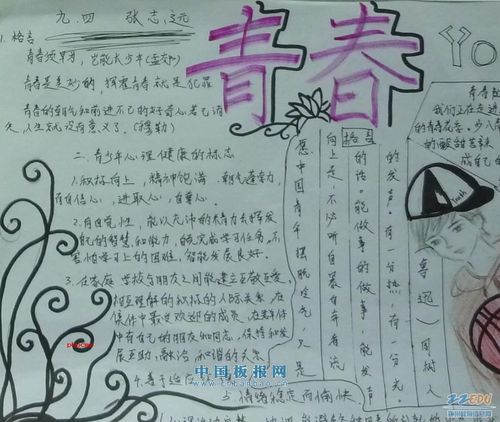 九.四 张志远
青春
YO
1.格言
青春须早为,岂能长少年(孟郊)
青春是美妙的,挥霍青春就是犯罪
青春的朝气和前进不已的好奇心若已消
人生就没有意义了。(穆勒)
二、青少年心理健康的标志
1.积极向上,精神饱满 朝气蓬勃,
有自信心,进取心,自尊心.
2.有自觉性,能以充沛的精力去发挥
自己的智慧和能力,能完成学习任务,不
害怕学习上的困难,智能发展良好.
3.在家庭 学校与朋友之间能建立互敬互爱,
相互理解的积极的人际关系,在
集体中最受欢迎的成员,在集体
中有自己的朋友和同志,保持和发
展互助,融洽 和谐的关系
4.善于适应
5.情绪稳定而愉快
格言
愿中国青年摆脱冷气,只是
向上走,不必听自暴自弃者流
的话。能做事的做事,能发声
的发声。有一分热,有一分光
鲁迅(周树人
青春
我们正在走进
的青春花季.步入
的酸甜苦辣
成自己的
Youth
中国板报网
22EDU
郑州教育信息网